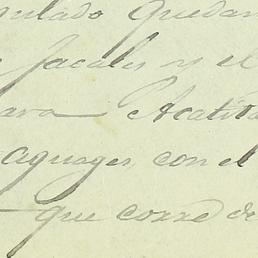 gulado quedan
Jacales y el
ara Acatita
aguages, con el
que corre de